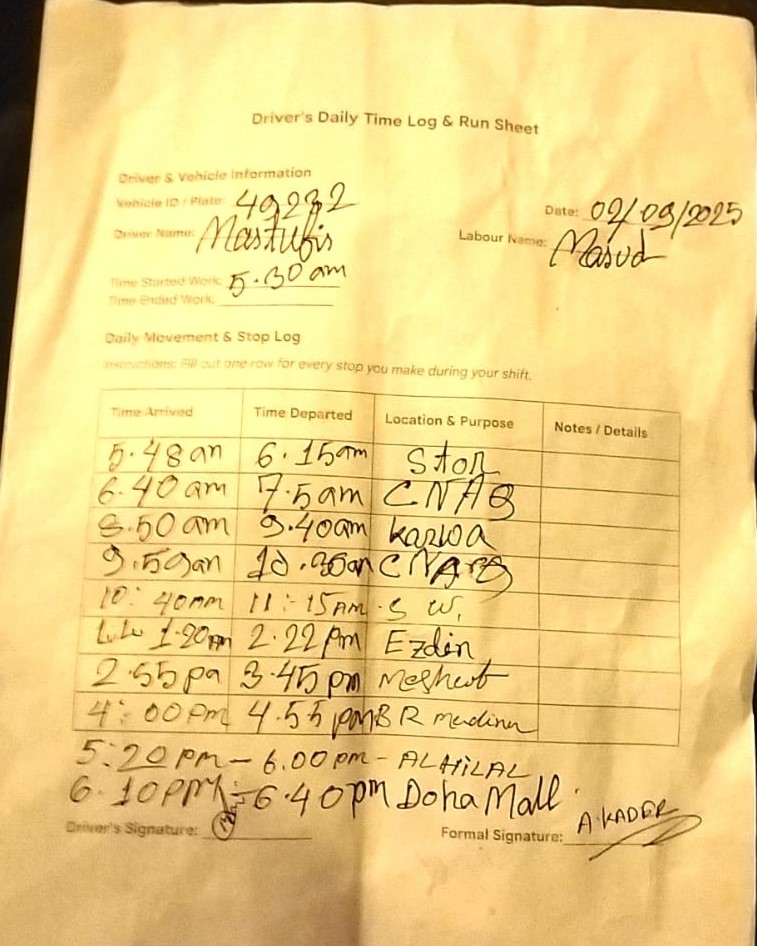 Driver's Daily Time Log & Run Sheet
Driver & Vehicle Information
Vehicle ID / Plate: 49232
Date: 02/09/2025
Driver Name: Mastufis
Labour Name: Masud
Time Started Work: 5.30 am
Time Ended Work:
Daily Movement & Stop Log
Instructions: Fill out one row for every stop you make during your shift.
Time Arrived Time Departed Location & Purpose Notes / Details
5.48 an 6.15am Stor
6.40 am 7.5am CNAQ
8.50 am 9.40am kazwa
9.59an 10.36an
10:40 11:-15AM S W.
1.20pm 2.22 pm Ezdin
2.55 pa 3.45 pm
4:00 pm 4.55 pm BR madina
5:20 PM - 6.00 PM - ALHILAL
6.10PM - 6.40pm Doha Mall.
Driver's Signature:
Formal Signature: A.KADER